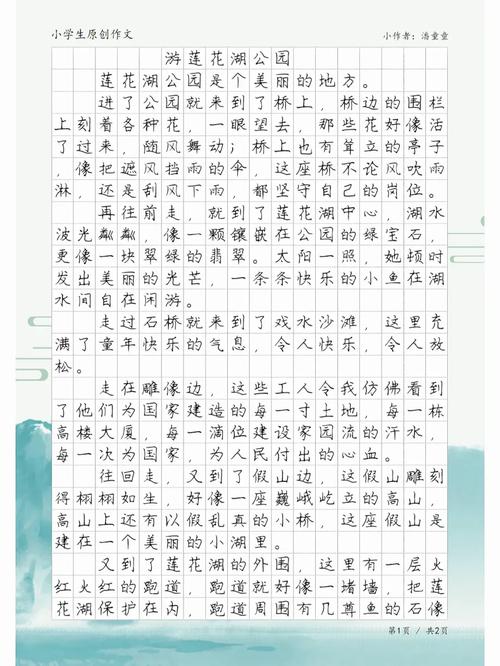 小学生原创作文
小作者：潘童童
游莲花湖公园
莲花湖公园是个美丽的地方。
进了公园就来到了桥上，桥边的围栏
上刻着各种花，一眼望去，那些花好像活
了过来，随风舞动；桥上也有耸立的亭子
，像把遮风挡雨的伞，这座桥不论风吹雨
淋，还是刮风下雨，都坚守自己的岗位。
再往前走，就到了莲花湖中心，湖水
波光粼粼，像一颗镶嵌在公园的绿宝石，
更像一块翠绿的翡翠。太阳一照，她顿时
发出美丽的光芒，一条条快乐的小鱼在湖
水间自在闲游。
走过石桥就来到了戏水沙滩，这里充
满了童年快乐的气息，令人快乐，令人放
松。
走在雕像边，这些工人令我仿佛看到
了他们为国家建造的每一寸土地，每一栋
高楼大厦，每一滴位建设家园流的汗水，
每一次为国家，为人民付出的心血。
往回走，又到了假山边，这假山雕刻
得栩栩如生，好像一座巍峨屹立的高山，
高山上还有以假乱真的小桥，这座假山是
建在一个美丽的小湖里。
又到了莲花湖的外围，这里有一层火
红火红的跑道，跑道就好像一堵墙，把莲
花湖保护在内，跑道周围有几尊鱼的石像
第1页 / 共2页